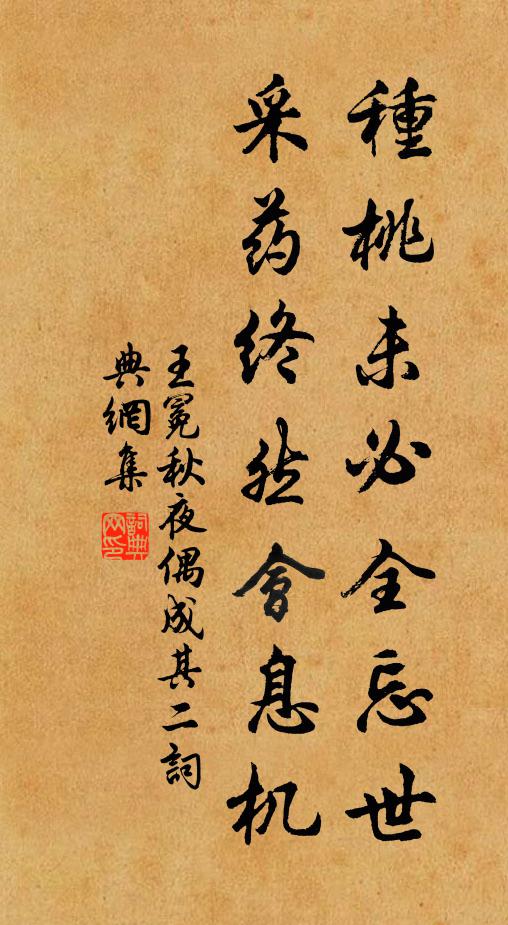 種桃未必全忘世
采药终然會息机
王冕秋夜偶成其二詞
典網集
詞典
网印